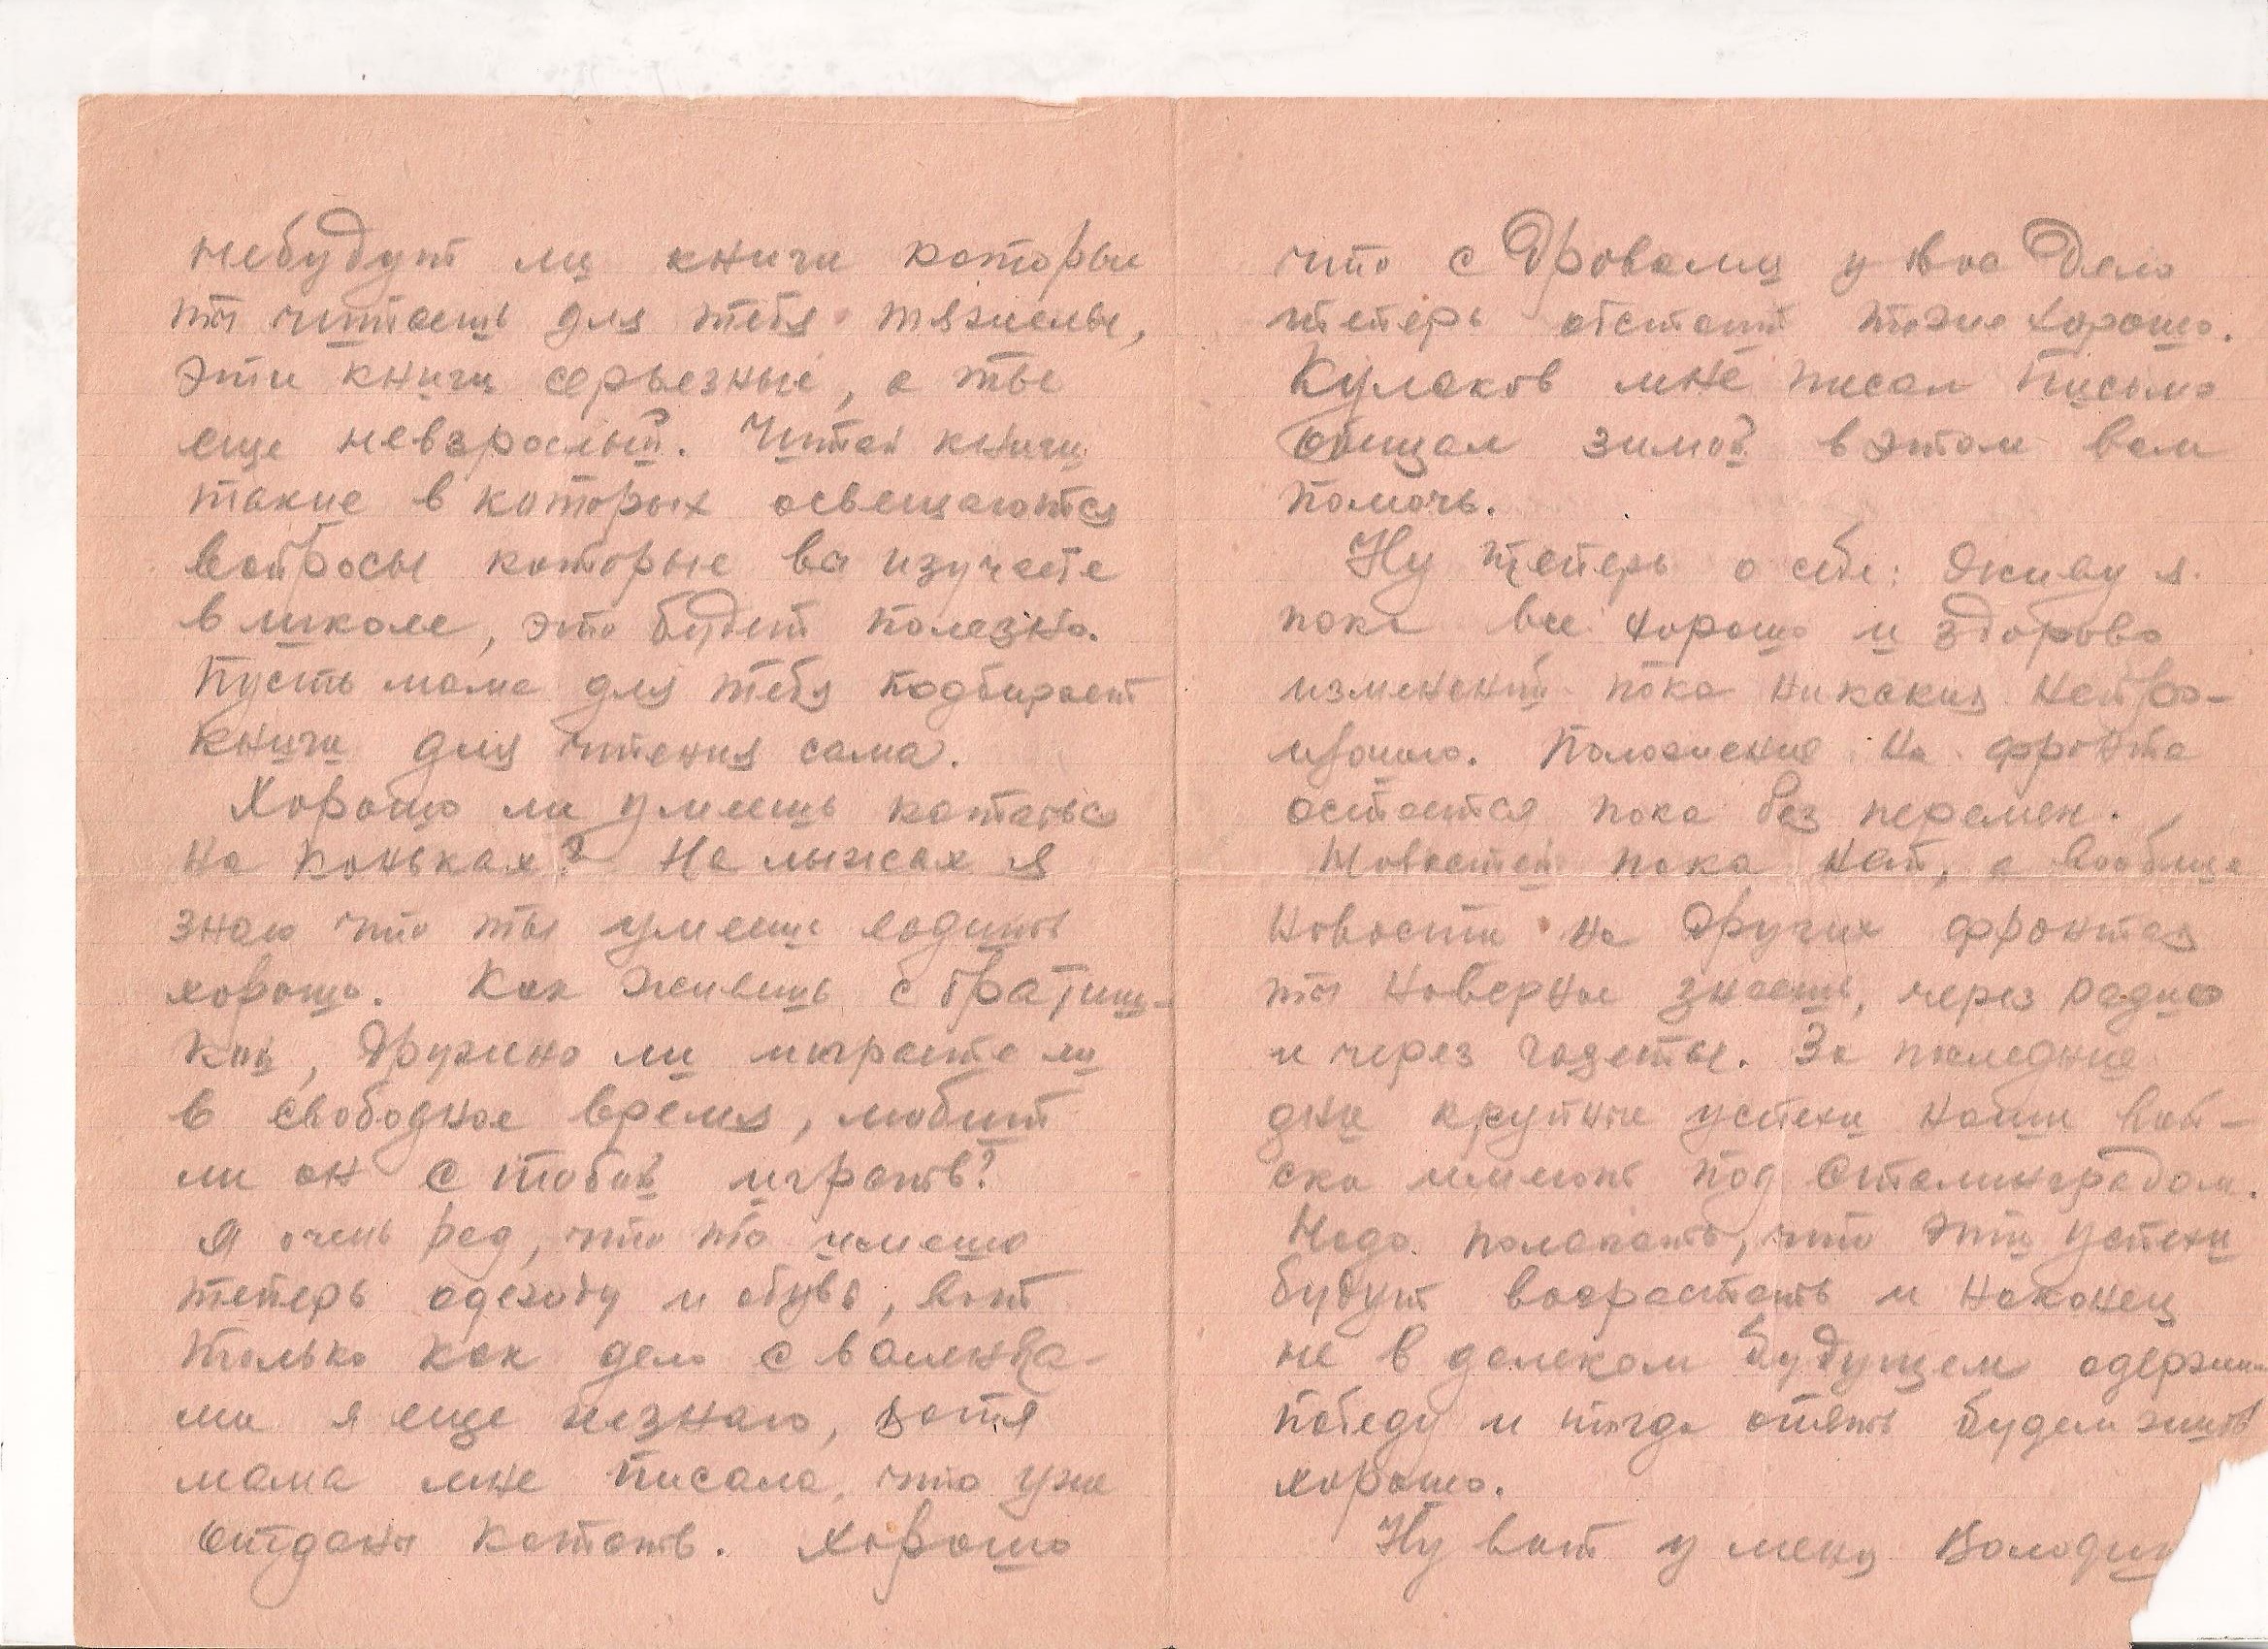 небудут ли книги которые
ты читаешь для тебя тяжелы,
эти книги серьезные, а ты
еще невзрослый. Читай книги
такие в которых освещаются
вопросы которые вы изучаете
в школе, это будет полезно.
Пусть мама для тебя подбирает
книги для чтения сама.
Хорошо ли умеешь кататься
на коньках? На лыжах я
знаю что ты умеешь ходить
хорошо. Как живешь с братиш-
кой, дружно ли играете ли
в свободное время, любит
ли он с тобой играть?
Я очень рад, что ты имеешь
теперь одежду и обувь, вот
только как дело с валенка-
ми я еще незнаю, хотя
мама мне писала, что уже
отданы катать. Хорошо
что с Дровами у вас Дело
теперь обстоит тоже хорошо.
Кулаков мне писал письмо
обищал зимой в этом вам
помочь.
Ну теперь о себе: Живу я
пока все хорошо и здорово
изменений пока никаких непро-
изошло. Положение на фронте
остается пока без перемен.
Новостей пока нет, а вообще
новости на других фронтах
ты наверное знаешь, через радио
и через газеты. За последние
дни крупные успехи наши вой-
ска имеют под Сталинградом.
Надо полагать, что эти успехи
будут возрастать и наконец
не в далеком будущем одержим
победу и тогда опять будем жить
хорошо.
Ну вот у меня